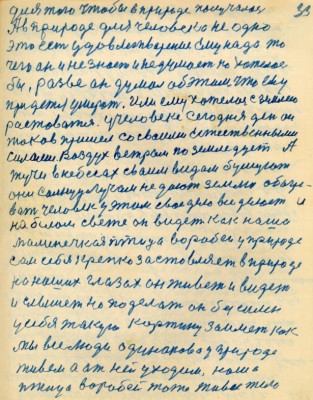 33
для того чтобы в природе получалось
А в природе для человека не одно
это есть удовлетворение ему надо то
чего он и не знает и не думает но хотел
бы, разве он думал об этом что ему
придется умереть. Или ему хотелось с
расстоватся. у человека сегодня ден он
таков пришел со своими естественными
силами. Воздух ветром по земле дует А
тучи в небесах своим видом бушуют
они солнцу лучам не дают землю обогре-
ват человек у этом своедно видиют и
на белом свете он видет как наша
маленечкая птица воробей у природе
сам себя крепко застовляет в природе
на наших глазах он живет и видет
и слышет но поделат он бессилен
у себя такую картину занимет как
мы все люди одинаково у природе
живем а от ней уходим, наша
птица воробей тоже живое тело